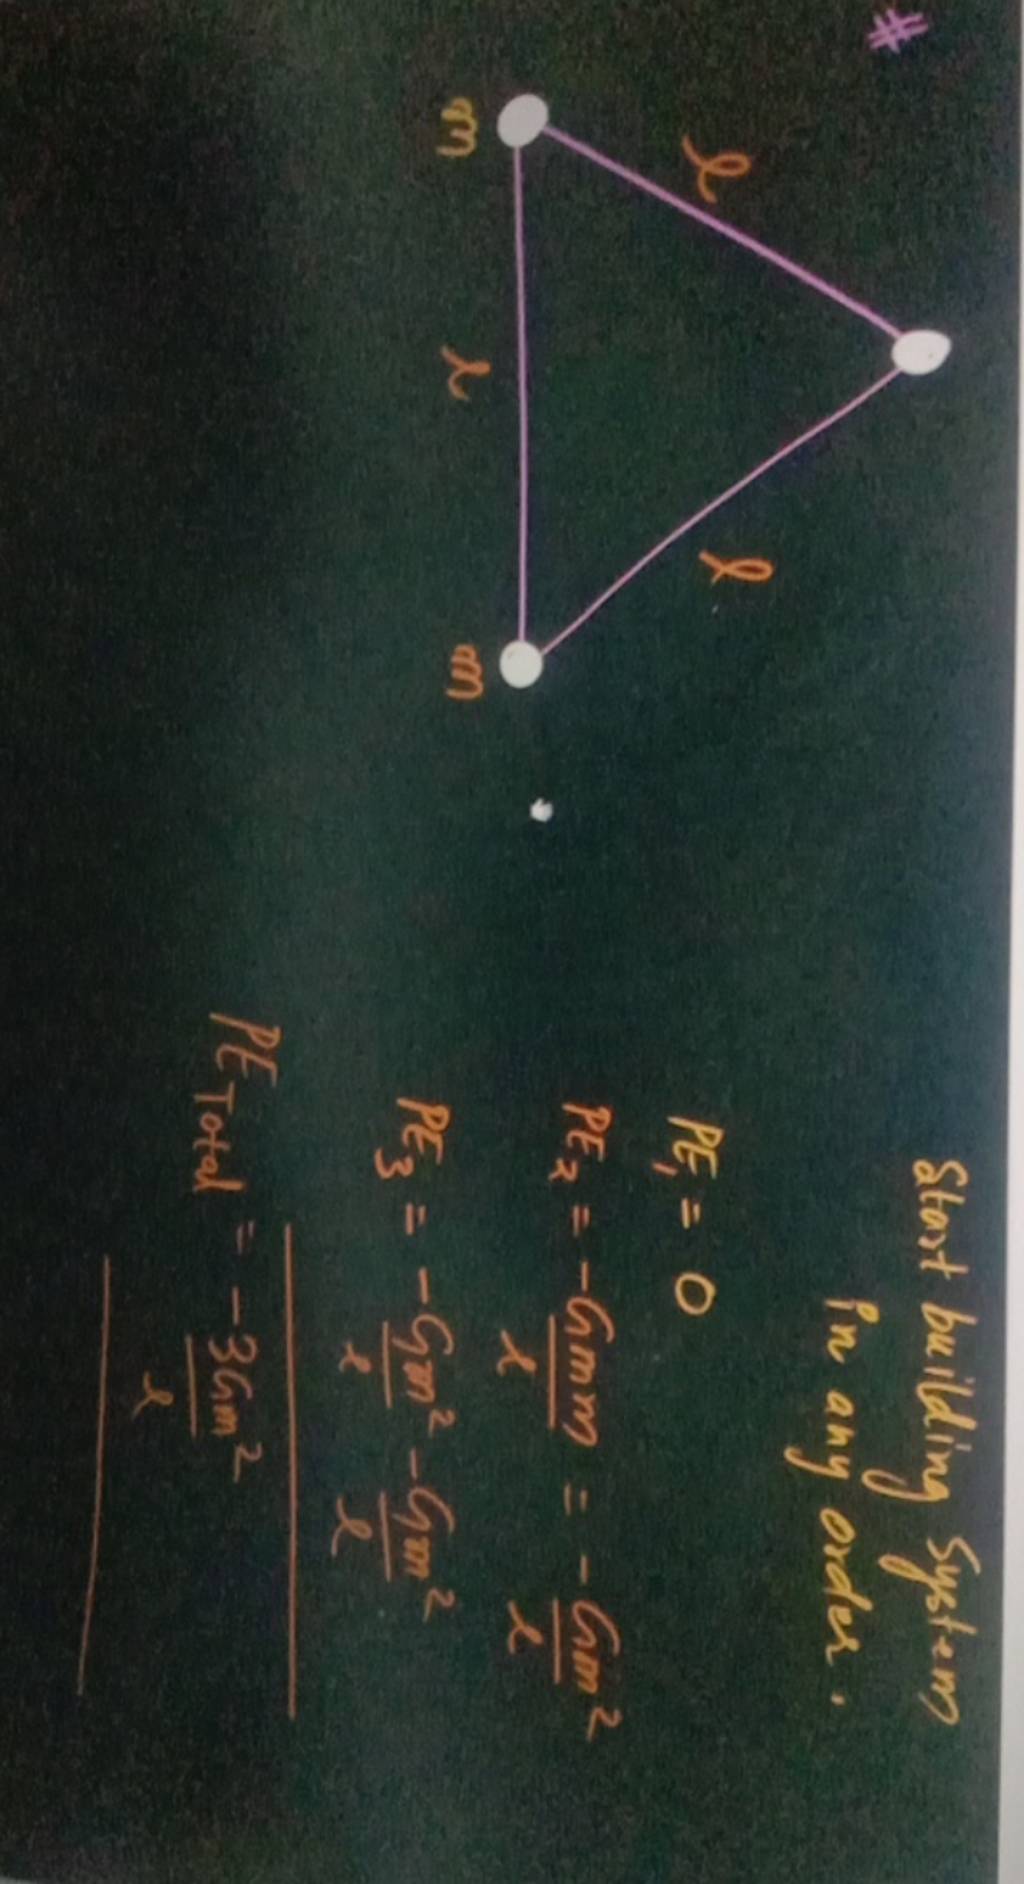 #
Start building System
in any order.
l
l
PE₁ = 0
PE₂ = -Gmm/l = -Gm²/l
m
l
m
PE₃ = -Gm²/l -Gm²/l
PE_Total = -3Gm²/l